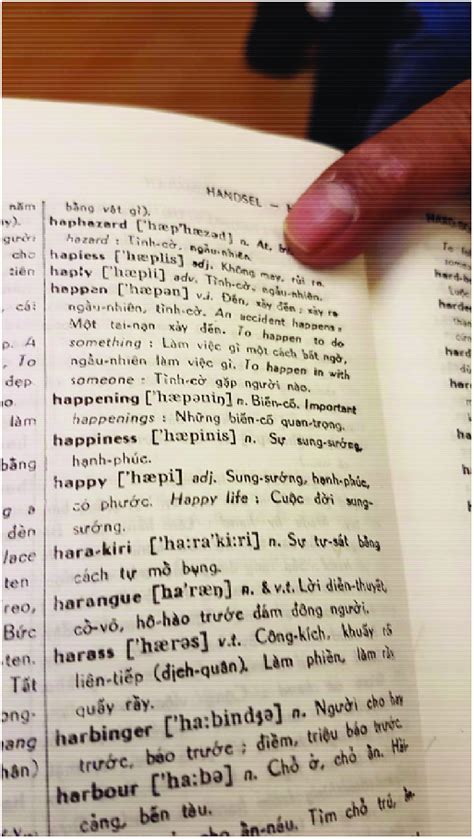 HANDSEL –
năm
gười
cho
tiên
cái
p. A
, To
đẹp
làm
bằng
g a
đèn
lace
ten
reo,
Bức
ten.
Tất
ong-
hân)
bằng vật gì).
haphazard ['hæp'hæzəd] n. At,
hazard : Tình-cờ, ngẫu-nhiên.
hapless ['hæplis] adj. Không may, rủi ro.
haply ['hæpli] adv. Tình-cờ, ngẫu-nhiên.
happen ['hæpən] v.i. Đến, xảy đến ; xảy ra
ngẫu-nhiên, tình-cờ. An accident happens,
Một tai-nạn xảy đến. To happen to do
something : Làm việc gì một cách bất ngờ,
ngẫu-nhiên làm việc gì. To happen in with
someone : Tình-cờ gặp người nào.
happening ['hæpəniŋ] n. Biến-cố. Important
happenings : Những biến-cố quan-trọng.
happiness ['hæpinis] n. Sự sung-sướng,
hạnh-phúc.
happy ['hæpi] adj. Sung-sướng, hạnh-phúc,
có phước. Happy life : Cuộc đời sung-
sướng.
hara-kiri ['ha:ra'ki:ri] n. Sự tự-sát bằng
cách tự mổ bụng.
harangue [ha'ræŋ] n. & v.t. Lời diễn-thuyết,
cổ-võ, hô-hào trước đám đông người.
harass ['hærəs] v.t. Công-kích, khuấy rối
liên-tiếp (địch-quân). Làm phiền, làm rầy
quấy rầy.
harbinger ['ha:bindʒə] n. Người cho hay
trước, báo trước ; điềm, triệu báo trước
harbour ['ha:bə] n. Chỗ ở, chỗ ẩn. Hải-
cảng, bến tàu.
ẩn-náu. Tìm chỗ trú, ẩn